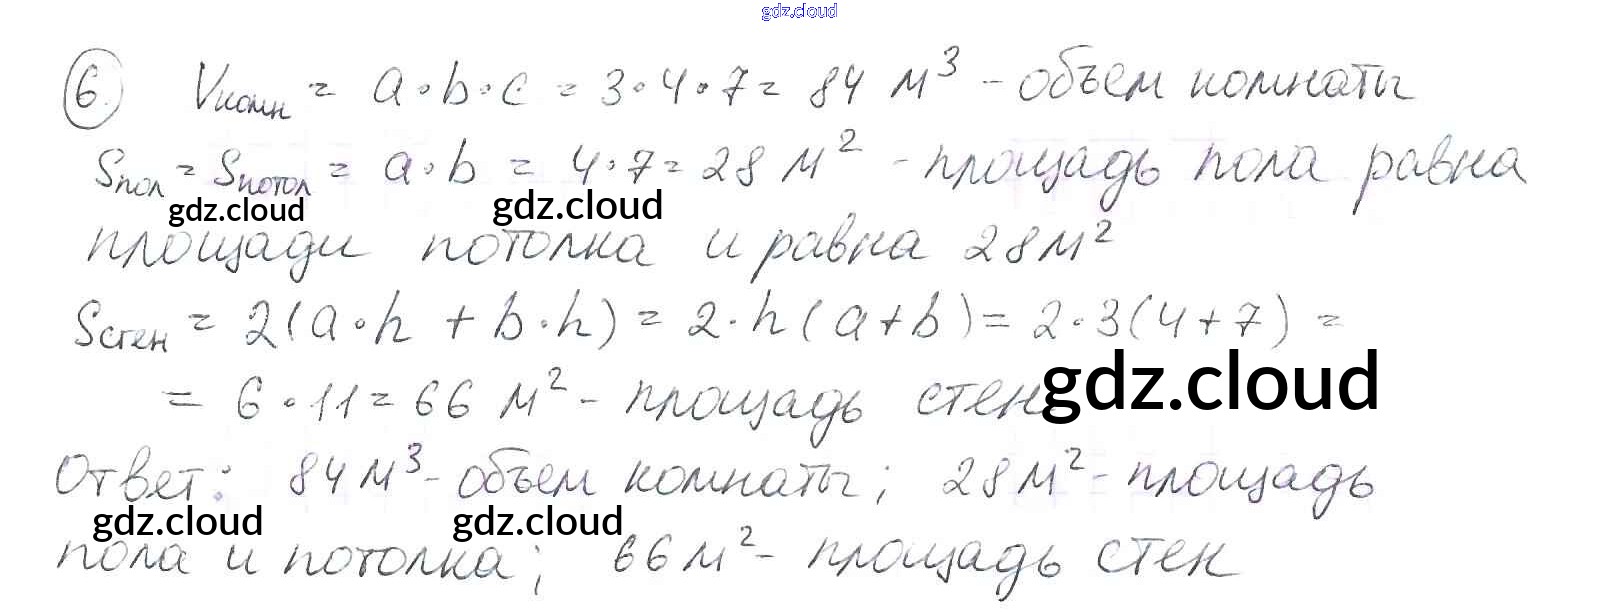 gdz.cloud
6. Vкомн = a·b·c = 3·4·7 = 84 м³ - объем комнаты
Sпол = Sпотол = a·b = 4·7 = 28 м² - площадь пола равна
gdz.cloud gdz.cloud
площади потолка и равна 28 м²
Sстен = 2(a·h + b·h) = 2·h(a+b) = 2·3(4+7) =
= 6·11 = 66 м² - площадь стен gdz.cloud
Ответ: 84 м³ - объем комнаты; 28 м² - площадь
gdz.cloud gdz.cloud
пола и потолка; 66 м² - площадь стен